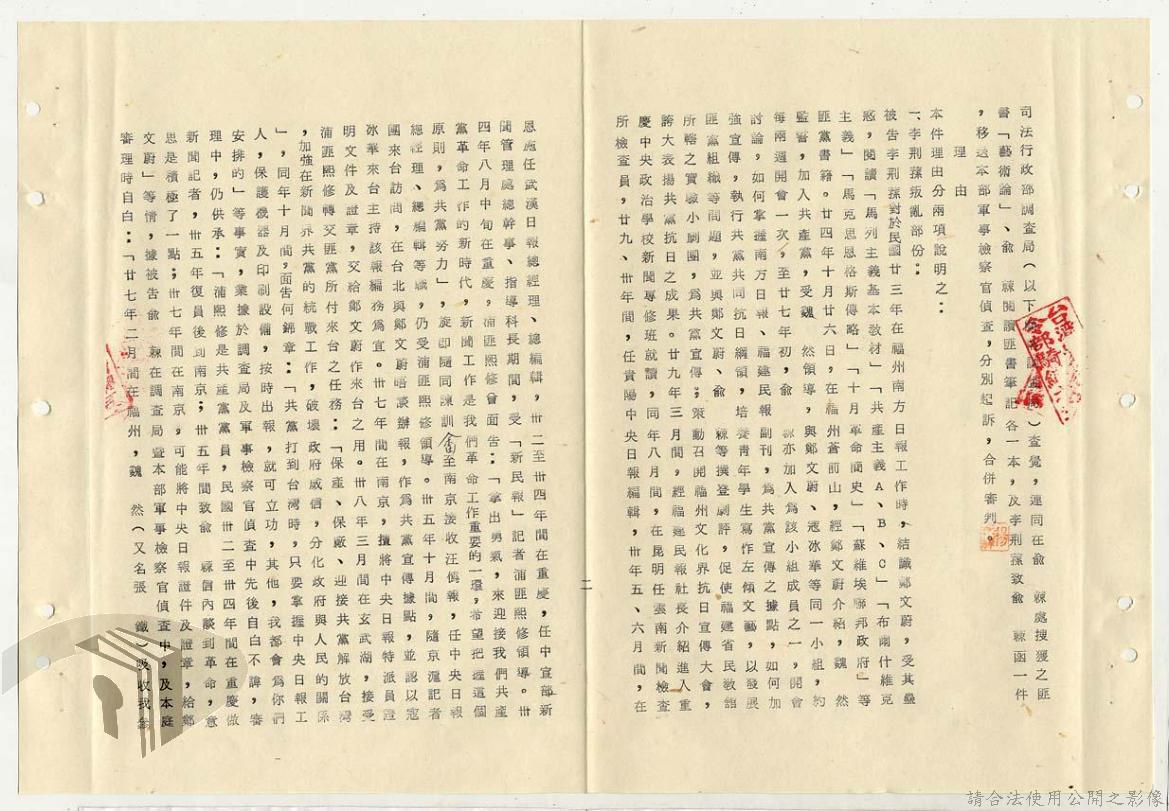 司法行政部調查局(以下 )查覺,連同在俞 棘處搜獲之匪
書「藝術論」、俞 棘閱讀匪書筆記各一本,及李荆蓀致俞 棘函一件
,移送本部軍事檢察官偵查,分別起訴,合併審判。
理由
本件理由分兩項說明之:
一、李荆蓀叛亂部份:
被告李荆蓀對於民國廿三年在福州南方日報工作時,結識鄭文蔚,受其蠱
惑,閱讀「馬列主義基本教材」「共產主義A、B、C」「布爾什維克
主義」「馬克思恩格斯傳略」「十月革命簡史」「蘇維埃聯邦政府」等
匪黨書籍。廿四年十月廿六日,在福州蒼前山,經鄭文蔚介紹,魏 然
監誓,加入共產黨,受魏 然領導,與鄭文蔚、寇冰華等同一小組,約
每兩週開會一次,至廿七年初,俞 棘亦加入為該小組成員之一,開會
討論,如何掌握南方日報、福建民報副刊,為共黨宣傳之據點,如何加
強宣傳,執行共黨共同抗日綱領,培養青年學生寫作左傾文藝,以發展
匪黨組織等問題,並與鄭文蔚、俞 棘等撰登劇評,促使福建省民教館
所轄之實驗小劇團,為共黨宣傳;策動召開福州文化界抗日宣傳大會,
誇大表揚共黨抗日之成果。廿九年三月間,經福建民報社長介紹進入重
慶中央政治學校新聞專修班就讀,同年八月間,在昆明任雲南新聞檢查
所檢查員,廿九、卅年間,任貴陽中央日報編輯,卅年五、六月間,在
二
恩施任武漢日報總經理、總編輯,卅二至卅四年間在重慶,任中宣部新
聞管理處總幹事、指導科長期間,受「新民報」記者浦匪熙修領導。卅
四年八月中旬在重慶,浦匪熙修會面告:「拿出勇氣,來迎接我們共產
黨革命工作的新時代,新聞工作是我們革命工作重要的一環,希望把握這個
原則,為共黨努力」,旋即隨同陳訓畬至南京接收汪偽報,任中央日報
總經理、總編輯等職,仍受浦匪熙修領導。卅五年十月間,隨京滬記者
團來台訪問,在台北與鄭文蔚晤談辦報,作為共黨宣傳據點,並認以寇
冰華來台主持該報編務為宜。卅七年間在南京,擅將中央日報特派員證
明文件及證章,交給鄭文蔚作來台之用。卅八年三月間在玄武湖,接受
浦匪熙修轉交匪黨所付來台之任務:「保產、保廠、迎接共黨解放台灣
,加強在新聞界共黨的統戰工作,破壞政府威信,分化政府與人民的關係
」,同年十月間,面告何錦章:「共黨打到台灣時,只要掌握中央日報工
人,保護機器及印刷設備,按時出報,就可立功,其他,我都會為你們
安排的」等事實,業據於調查局及軍事檢察官偵查中先後自白不諱,審
理中,仍供承:「浦熙修是共產黨員,民國卅二至卅四年間在重慶做
新聞記者,卅五年復員後到南京;卅五年間致俞 棘信內談到革命,意
思是積極了一點;卅七年間在南京,可能將中央日報證件及證章,給鄭
文蔚」等情,據被告俞 棘在調查局暨本部軍事檢察官偵查中,及本庭
審理時自白:「廿七年二月間在福州,魏 然(又名張 鐵)吸收我參
請合法使用公開之影像